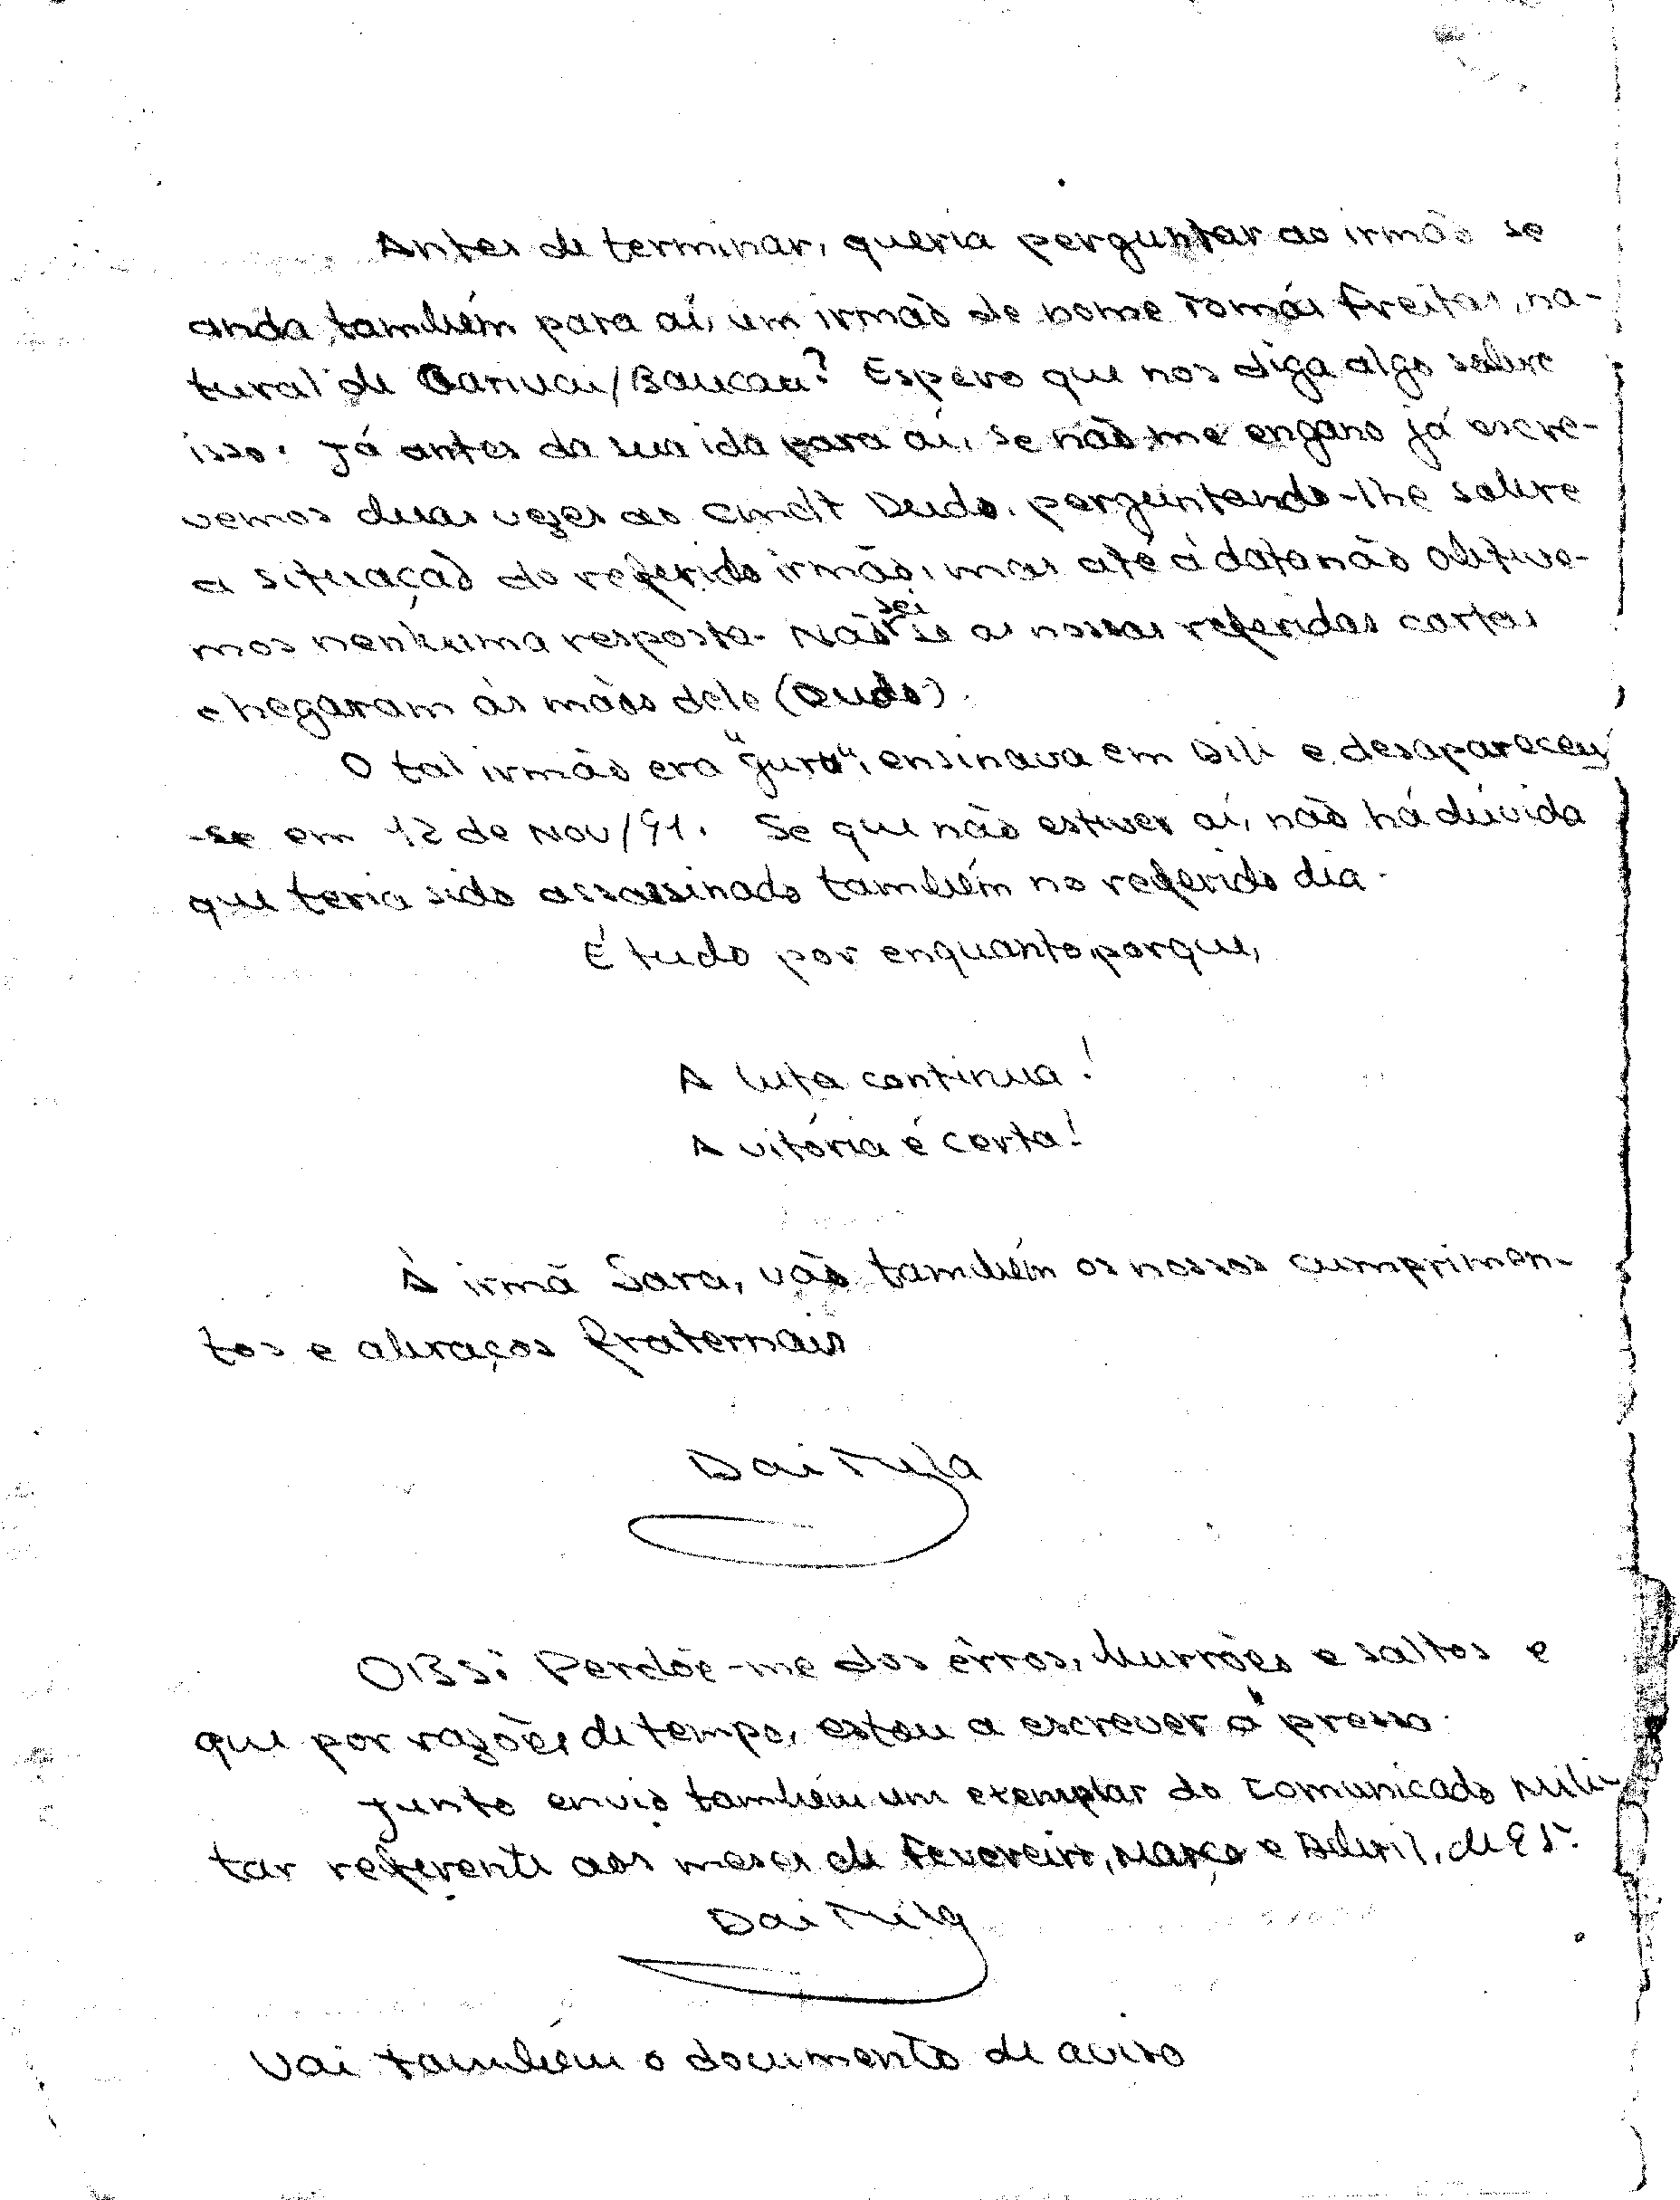 Antes de terminar, queria perguntar ao irmão se
anda também para aí, um irmão de nome Tomás Freitas, na-
tural de Gariuai/Baucau? Espero que nos diga algo sobre
isso. Já antes da sua ida para aí, se não me engano já escre-
vemos duas vezes ao Cmdt Dudo, perguntando-lhe sobre
a situação do referido irmão, mas até à data não obtive-
mos nenhuma resposta. Não sei se as nossas referidas cartas
chegaram às mãos dele (Dudo).
O tal irmão era "guru", ensinava em Dili e desapareceu
-se em 12 de Nov/91. Se que não estiver aí, não há dúvida
que teria sido assassinado também no referido dia.
É tudo por enquanto, porque,
A luta continua!
A vitória é certa!
À irmã Sara, vão também os nossos cumprimen-
tos e abraços fraternais
Dai Tula
OBS: Perdõe-me dos êrros, burrões e saltos e
que por razões de tempo, estou a escrever à pressa.
Junto envio também um exemplar do Comunicado Mili-
tar referente aos meses de Fevereiro, Março e Abril, de 95.
Dai Tula
Vai também o documento de aviso